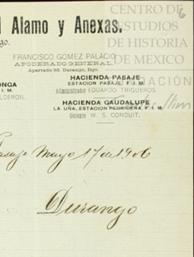 CENTRO DE
ESTUDIOS
DE HISTORIA
DE MEXICO
Alamo y Anexas.
go.
FRANCISCO GOMEZ PALACIO
APODERADO GENERAL
Apartado 88. Durango, Dgo.
HACIENDA PASAJE
ESTACION PASAJE, F. I. M.
Administrador EDUARDO TRIGUEROS
ONGA
I. M.
LDERON.
HACIENDA GUADALUPE
LA UÑA, ESTACION PEDRICEÑA, F. I. M.
W. S. CONDUIT.
Mayo 17 de 1906
Durango